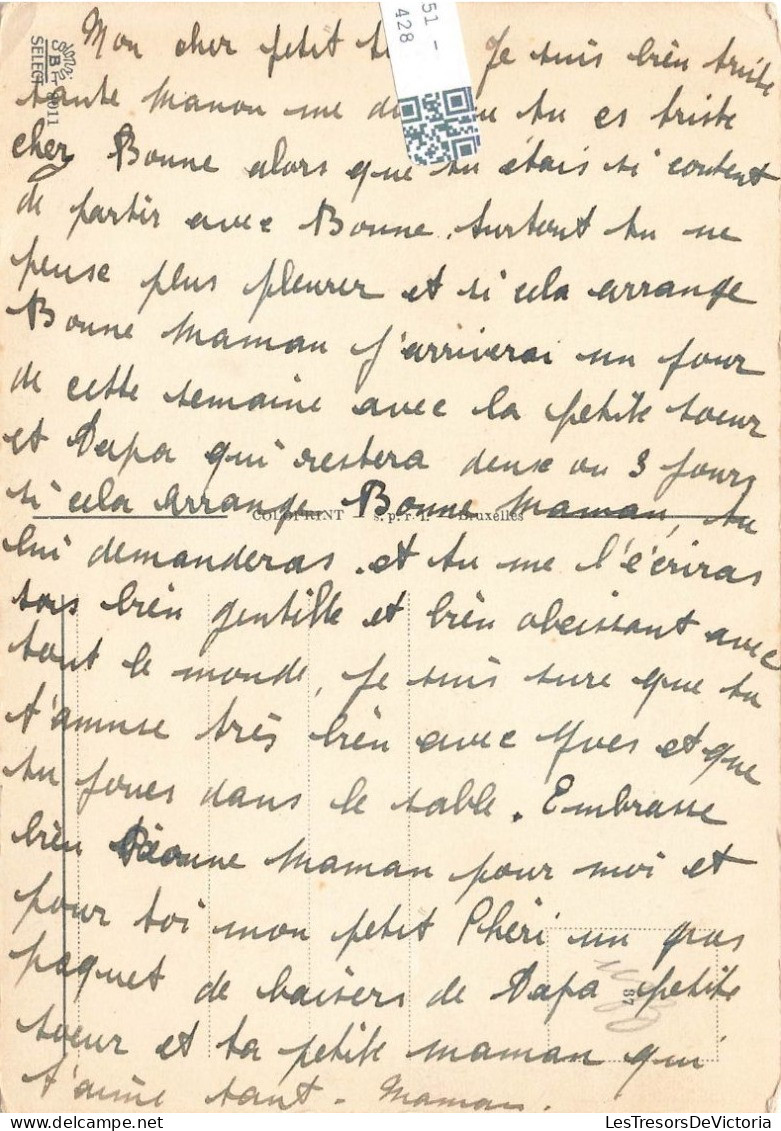 51 -
428
SBP 8011
SELECT
Mon cher petit Je suis bien triste
tante Manon me tu es triste
chez Bonne alors que tu étais si content
de partir avec Bonne. surtout tu ne
pense plus pleurer et si cela arrange
Bonne Maman j'arriverai un jour
de cette semaine avec la petite soeur
et Papa qui restera deux ou 3 jours
si cela arrange Bonne Maman, tu
COLOPRINT s. p. r. l. Bruxelles
lui demanderas. et tu me l'écriras
sois bien gentille et bien obeissant avec
tout le monde, Je suis sure que tu
t'amuse très bien avec Yves et que
tu joues dans le sable. Embrasse
bien Bonne Maman pour moi et
pour toi mon petit Chéri un gros
paquet de baisers de Papa petite
soeur et ta petite maman qui
t'aime tant - Maman.
87
LesTresorsDeVictoria